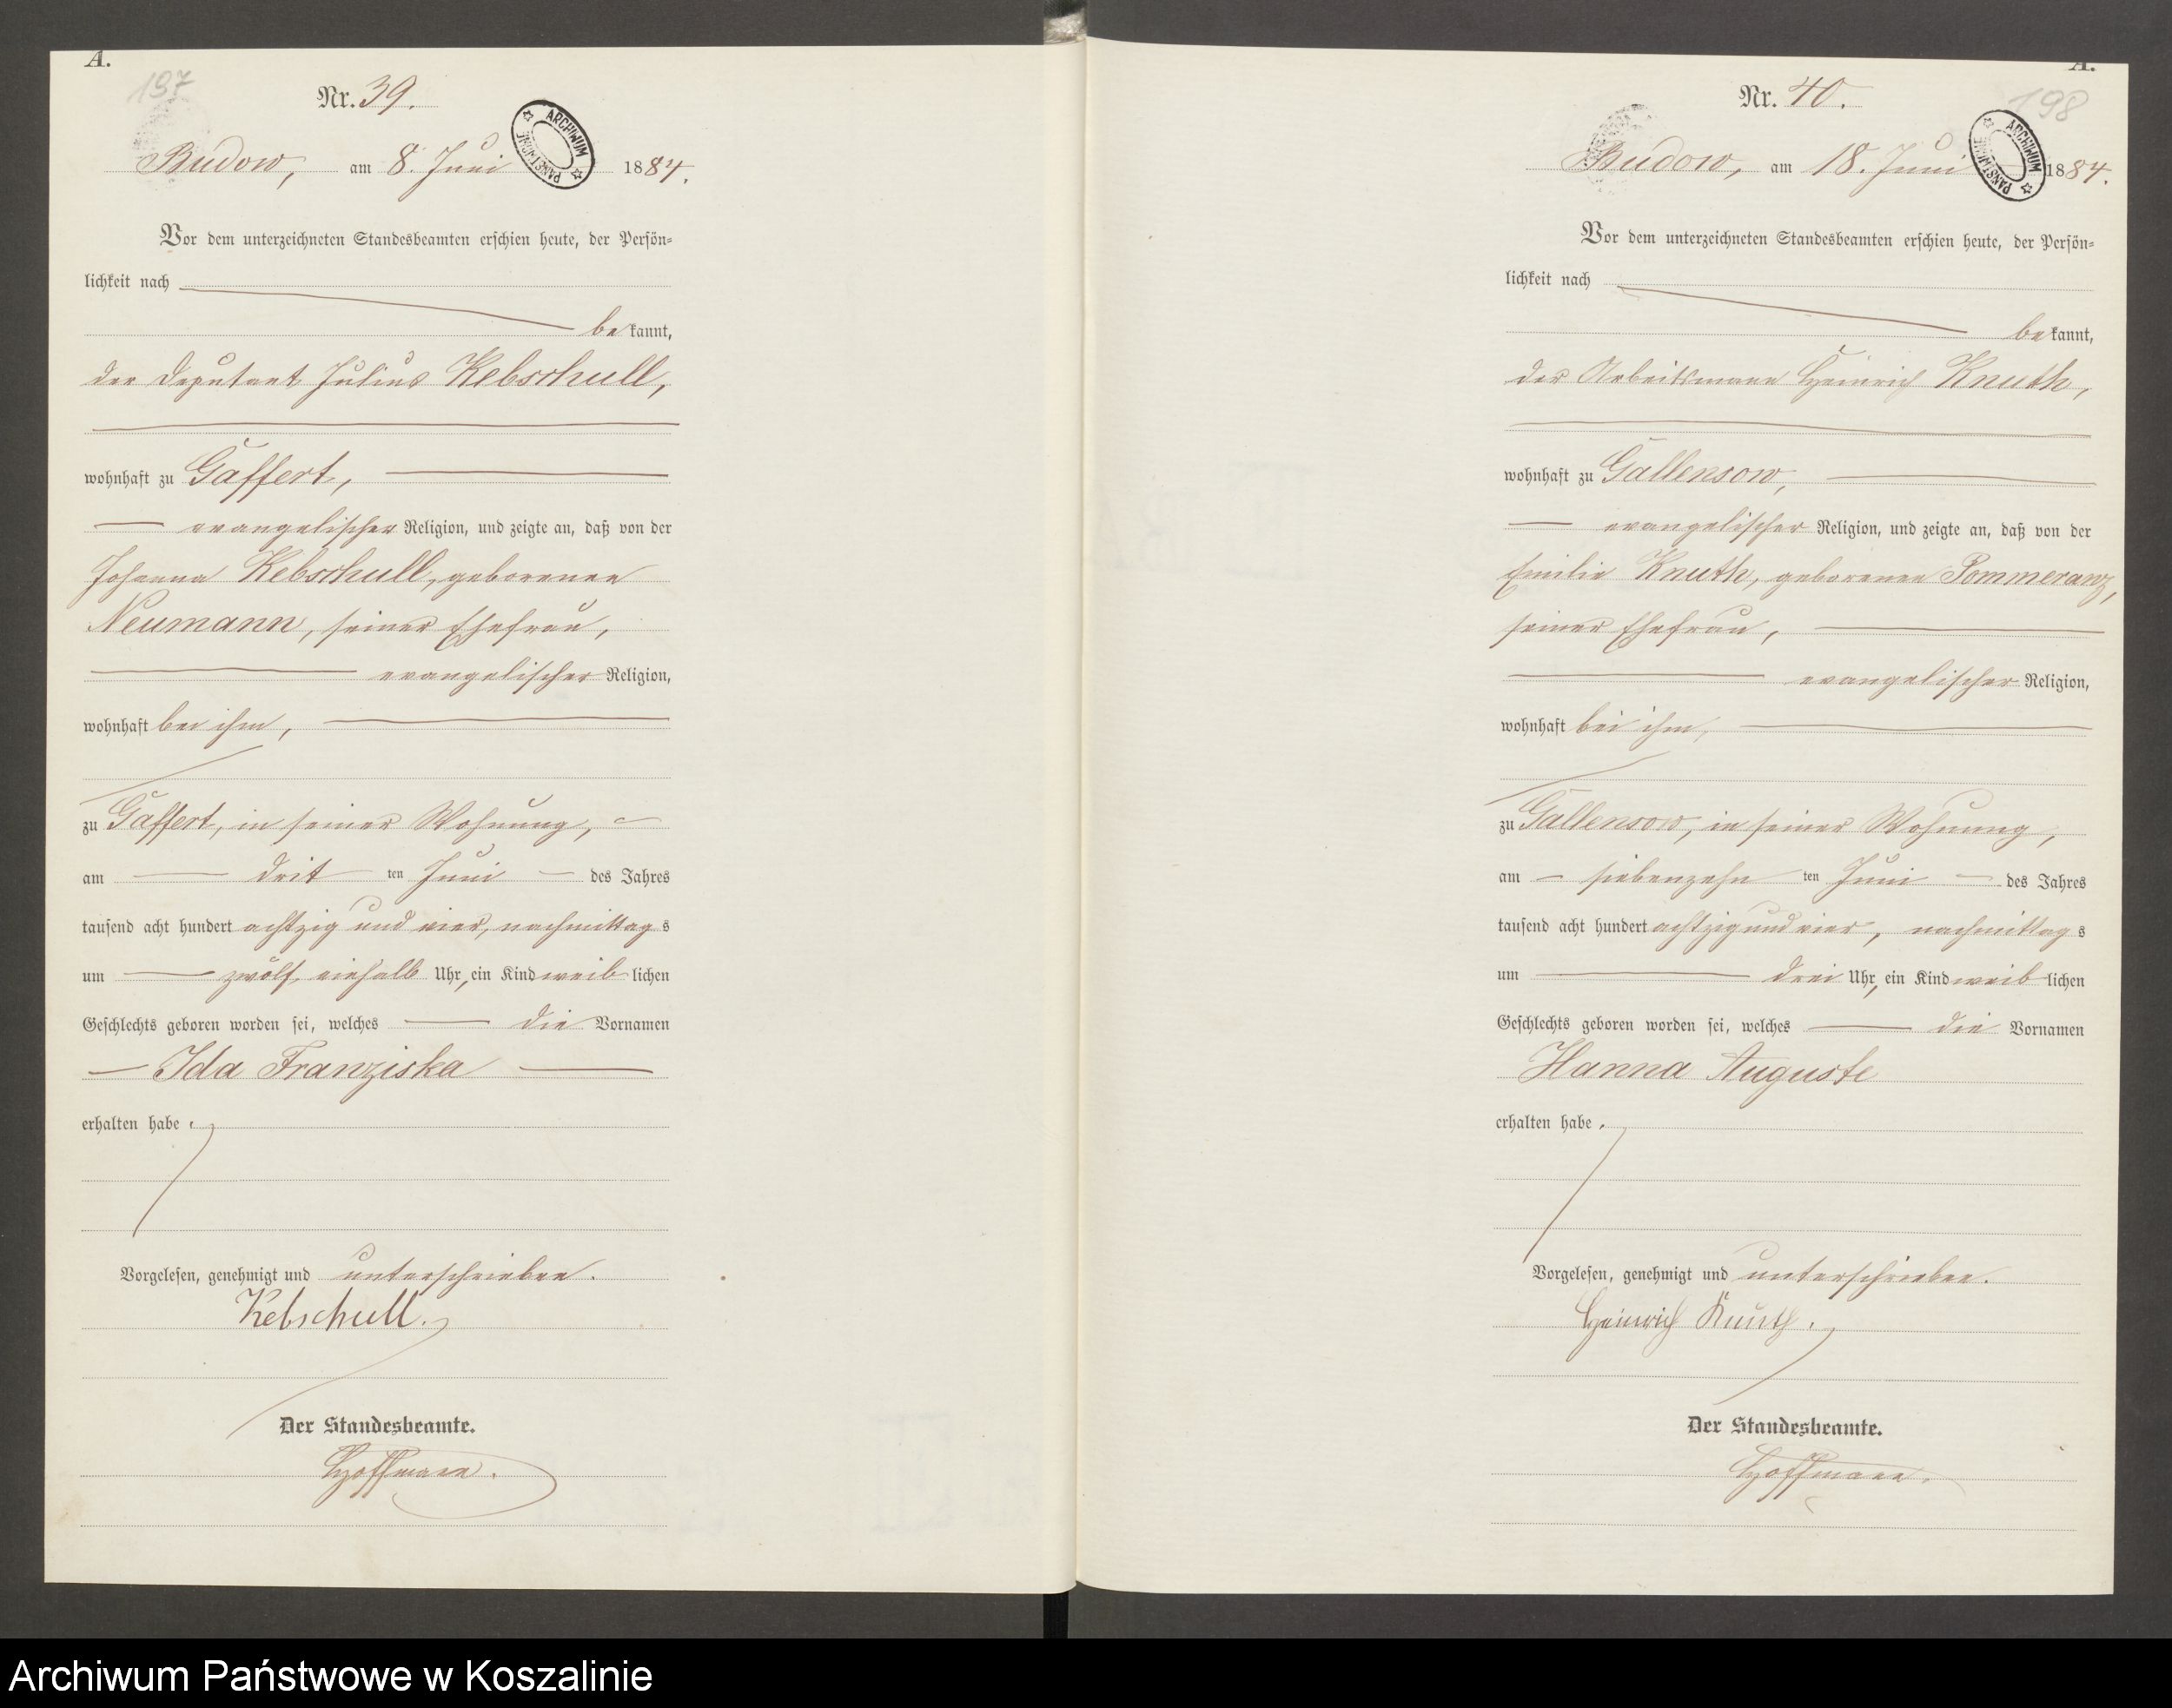 A.
197
Nr. 39.
ARCHIWUM PAŃSTWOWE
Budow, am 8. Juni 1884.
Vor dem unterzeichneten Standesbeamten erschien heute, der Persön=
lichkeit nach
bekannt,
der Deputant Julius Kebschull,
wohnhaft zu Gaffert,
evangelischer Religion, und zeigte an, daß von der
Johanna Kebschull, geborenen
Neumann, seiner Ehefrau,
evangelischer Religion,
wohnhaft bei ihm,
zu Gaffert, in seiner Wohnung,
am dritten Juni des Jahres
tausend acht hundert achtzig und vier, nachmittags
um zwölf einhalb Uhr, ein Kind weiblichen
Geschlechts geboren worden sei, welches die Vornamen
Ida Franziska
erhalten habe.
Vorgelesen, genehmigt und unterschrieben.
Kebschull.
Der Standesbeamte.
Hoffmann.
A.
198
Nr. 40.
ARCHIWUM PAŃSTWOWE
Budow, am 18. Juni 1884.
Vor dem unterzeichneten Standesbeamten erschien heute, der Persön=
lichkeit nach
bekannt,
der Arbeitsmann Heinrich Knuth,
wohnhaft zu Gallensow,
evangelischer Religion, und zeigte an, daß von der
Emilie Knuth, geborenen Pommeranz,
seiner Ehefrau,
evangelischer Religion,
wohnhaft bei ihm,
zu Gallensow, in seiner Wohnung,
am siebenzehnten Juni des Jahres
tausend acht hundert achtzig und vier, nachmittags
um drei Uhr, ein Kind weiblichen
Geschlechts geboren worden sei, welches die Vornamen
Hanna Auguste
erhalten habe.
Vorgelesen, genehmigt und unterschrieben.
Heinrich Knuth.
Der Standesbeamte.
Hoffmann.
Archiwum Państwowe w Koszalinie